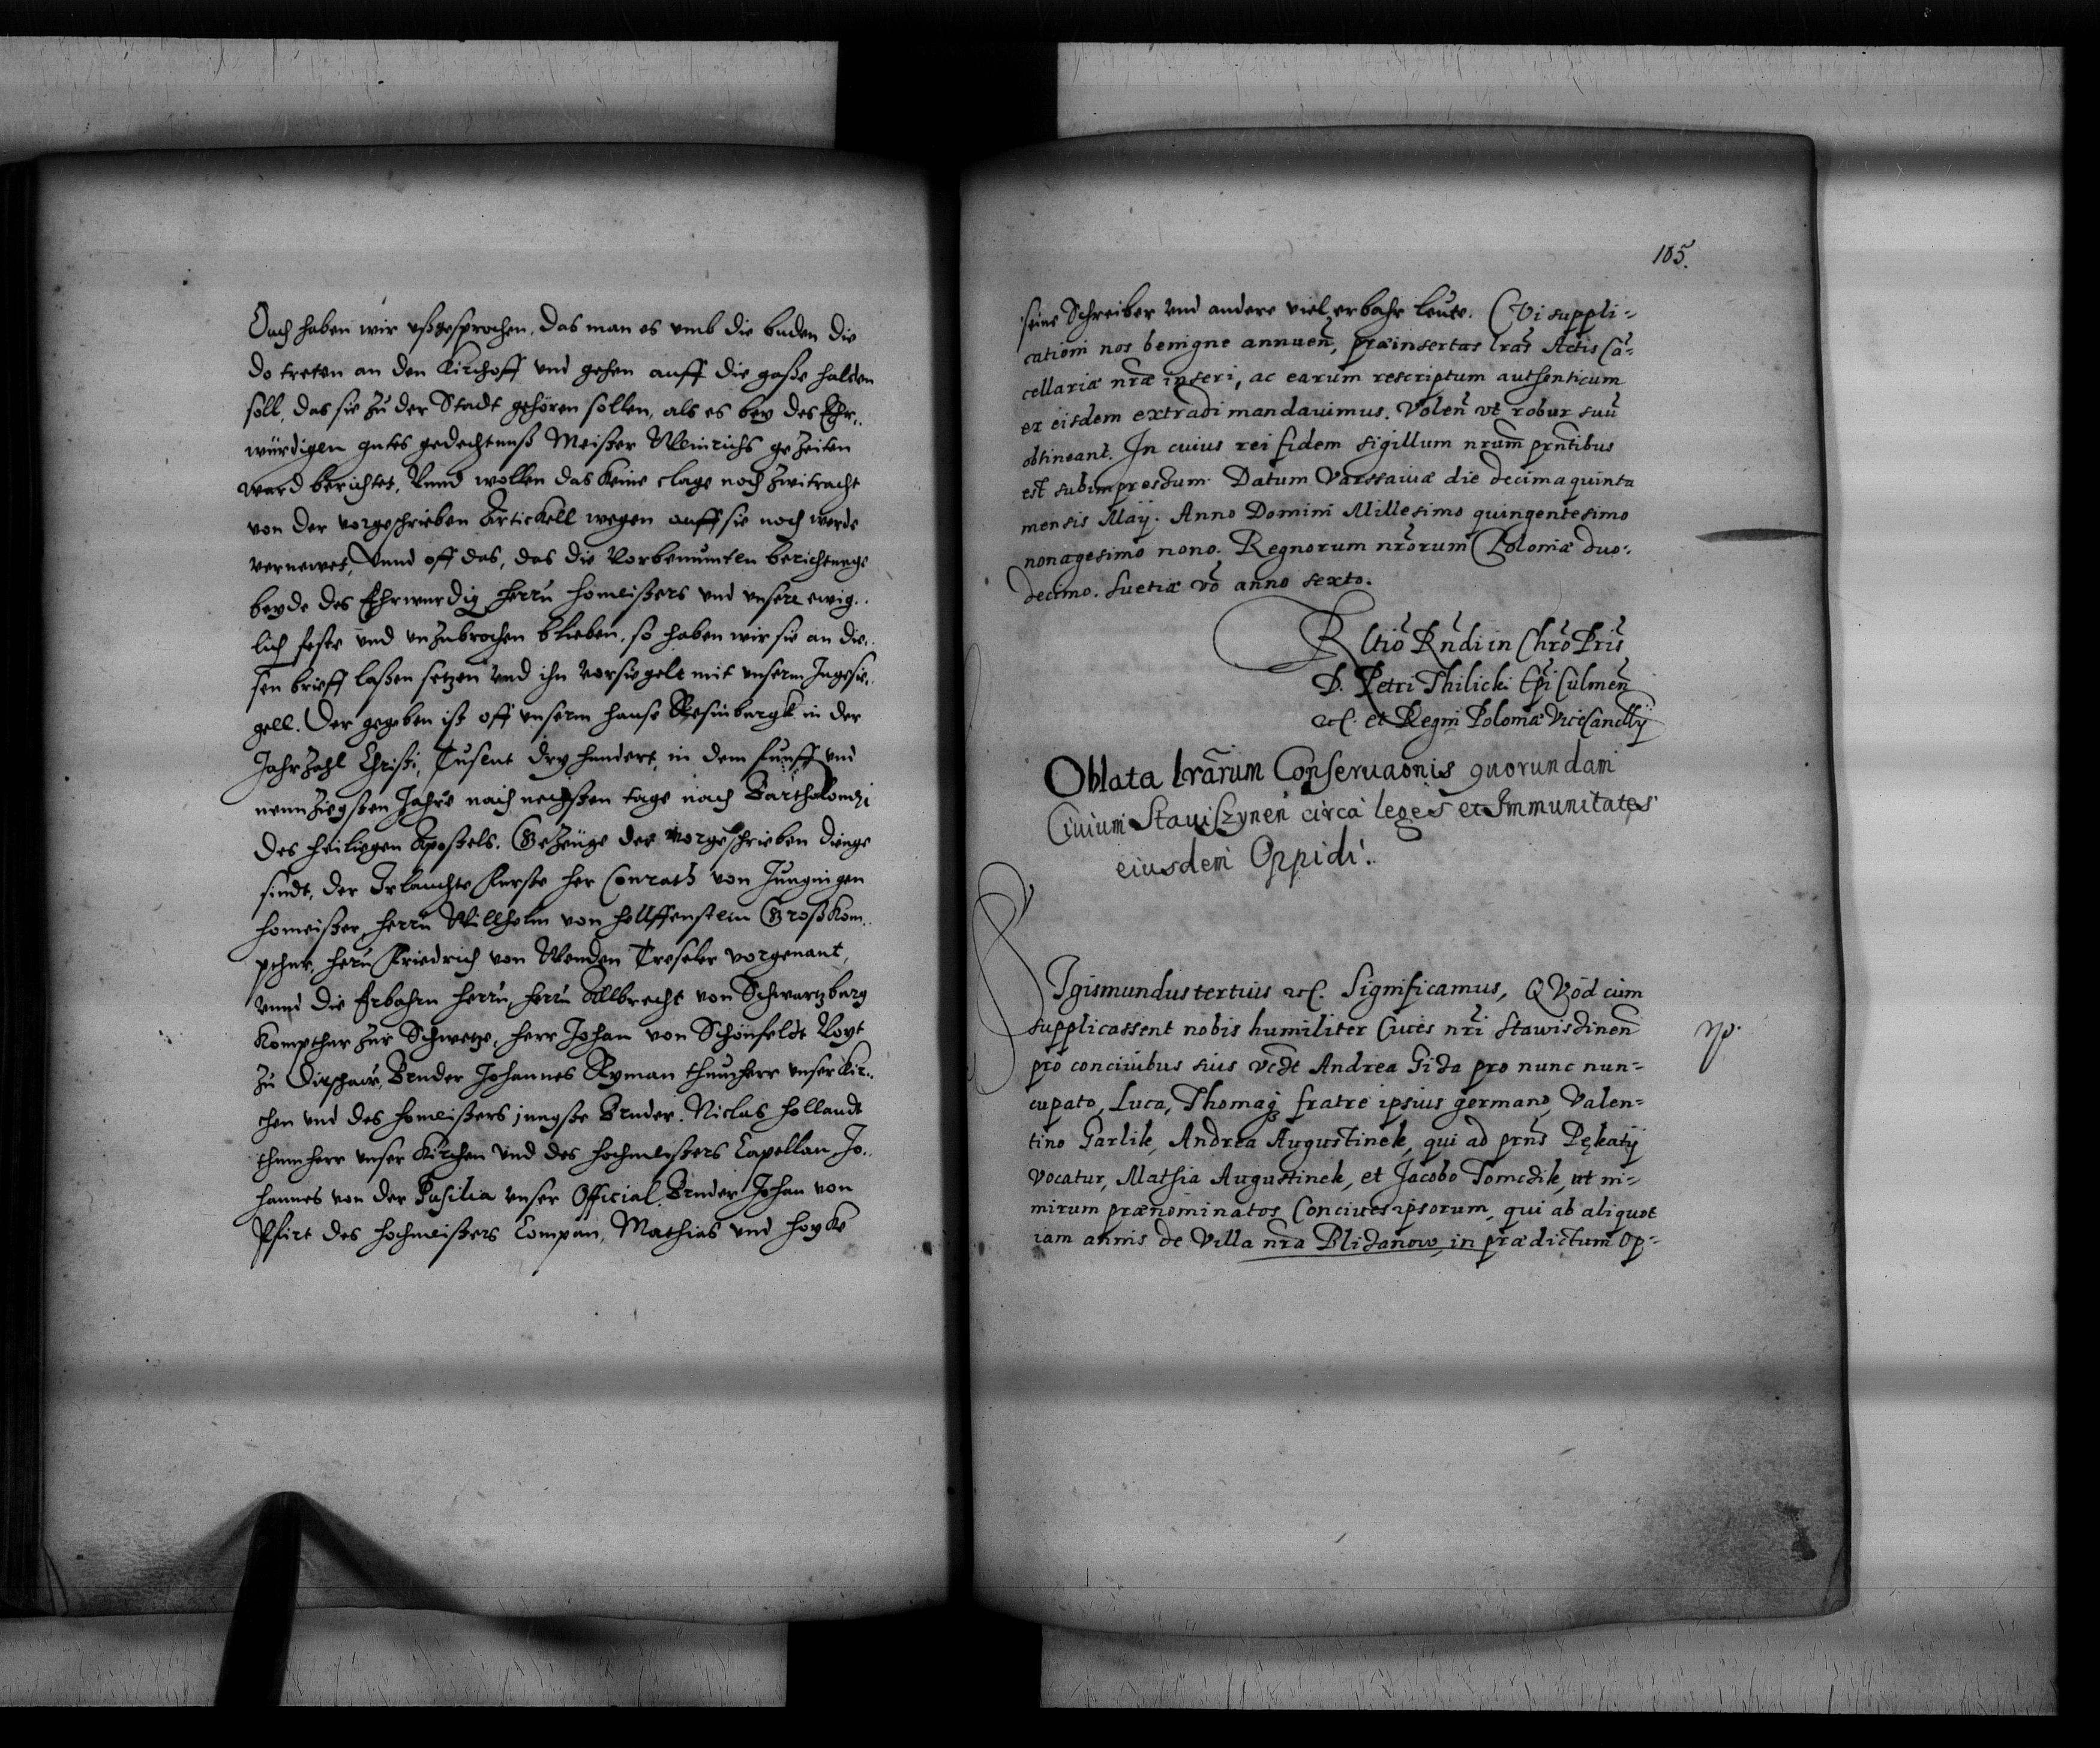 Och haben wir ußgesprochen, das man es umb die buden die
do treten an den Kirchoff und gehen auff die gaße halden
soll, das sie zu der Stadt gehören sollen, als es bey des Ehr-
würdigen gutes gedechtnuß Meister Weinrichs gezeiten
ward berichtet, Unnd wollen das keine clage noch zwitracht
von der vorgeschrieben Artickell wegen auff sie noch werde
vernewet, Unnd off das, das die Vorbenumten berichtunge
beyde des Ehrwurdig herrn homeisters und unsere ewig-
lich feste und unzubrochen blieben, so haben wir sie an die-
sen brieff laßen setzen und ihn vorsiegelt mit unserm Ingesie-
gell. Der gegeben ist off unserm hause Resinburgk in der
Jahrzahl Christi, Tusent dry hundert, in dem funff und
neunziegsten Jahre nach nechsten tage nach Bartholomæi
des heiliegen Apostels. Gezeuge der vorgeschrieben dinge
sindt, der Irlauchte furste her Conrath von Jungingen
homeister, herrn Willhelm von helffenstein Großkom-
pthur, herrn Friedrich von Wenden Treseler vorgenant,
unnd die Erbahrn herrn, herrn Allbrecht von Schwartzburg
Kompthur zur Schwetze, herr Johan von Schönfeldt Voyt
zu Dirschaw, Bruder Johannes Ryman thumherr unser Kir-
chen und des homeisters jungste Bruder. Niclas hollandt
thumherr unser Kirchen und des hochmeisters Capellan, Jo-
hannes von der Pusilia unser Official. Bruder Johan von
Pfirt des hochmeisters Compan, Mathias und hoyke
105.
seine Schreiber und andere viel erbahr leute. Cui suppli-
cationi nos benigne annuen̄, præinsertas lr̄as Actis Cā-
cellariæ nr̄æ inseri, ac earum rescriptum authenticum
ex eisdem extradi mandavimus. Volen̄ vt robur suū
obtineant. In cuius rei fidem sigillum nrūm prn̄tibus
est subimpressum. Datum Varssaviæ die decima quinta
mensis Maij. Anno Domini Millesimo quingentesimo
nonagesimo nono. Regnorum nr̄orum Poloniæ duo-
decimo. Suetiæ vō anno sexto.
Rltiō Rn̄di in Chrō Pris̄
D. Petri Thilicki Ep̄i Culmen̄
etc. et Regni Poloniæ ViceCancellrij
Oblata lrārum Conseruaonis quorundam
Ciuium Stauiszynen̄ circa leges et Immunitates
eiusdem Oppidi.
SIgismundus tertius etc. Significamus, QVod cum
supplicassent nobis humiliter Ciues nr̄i Stawisdinen̄
pro conciuibus suis vcdt Andrea Gida pro nunc nun-
cupato, Luca, Thomaq fratre ipsius germano, Valen-
tino Garlik, Andrea Augustinek, qui ad prn̄s Pękatÿ
vocatur, Mathia Augustinek, et Jacobo Tomcdik, ut ni-
mirum prænominatos Conciues ipsorum, qui ab aliquot
iam annis de Villa nr̄a Blidanow, in prædictum Op-